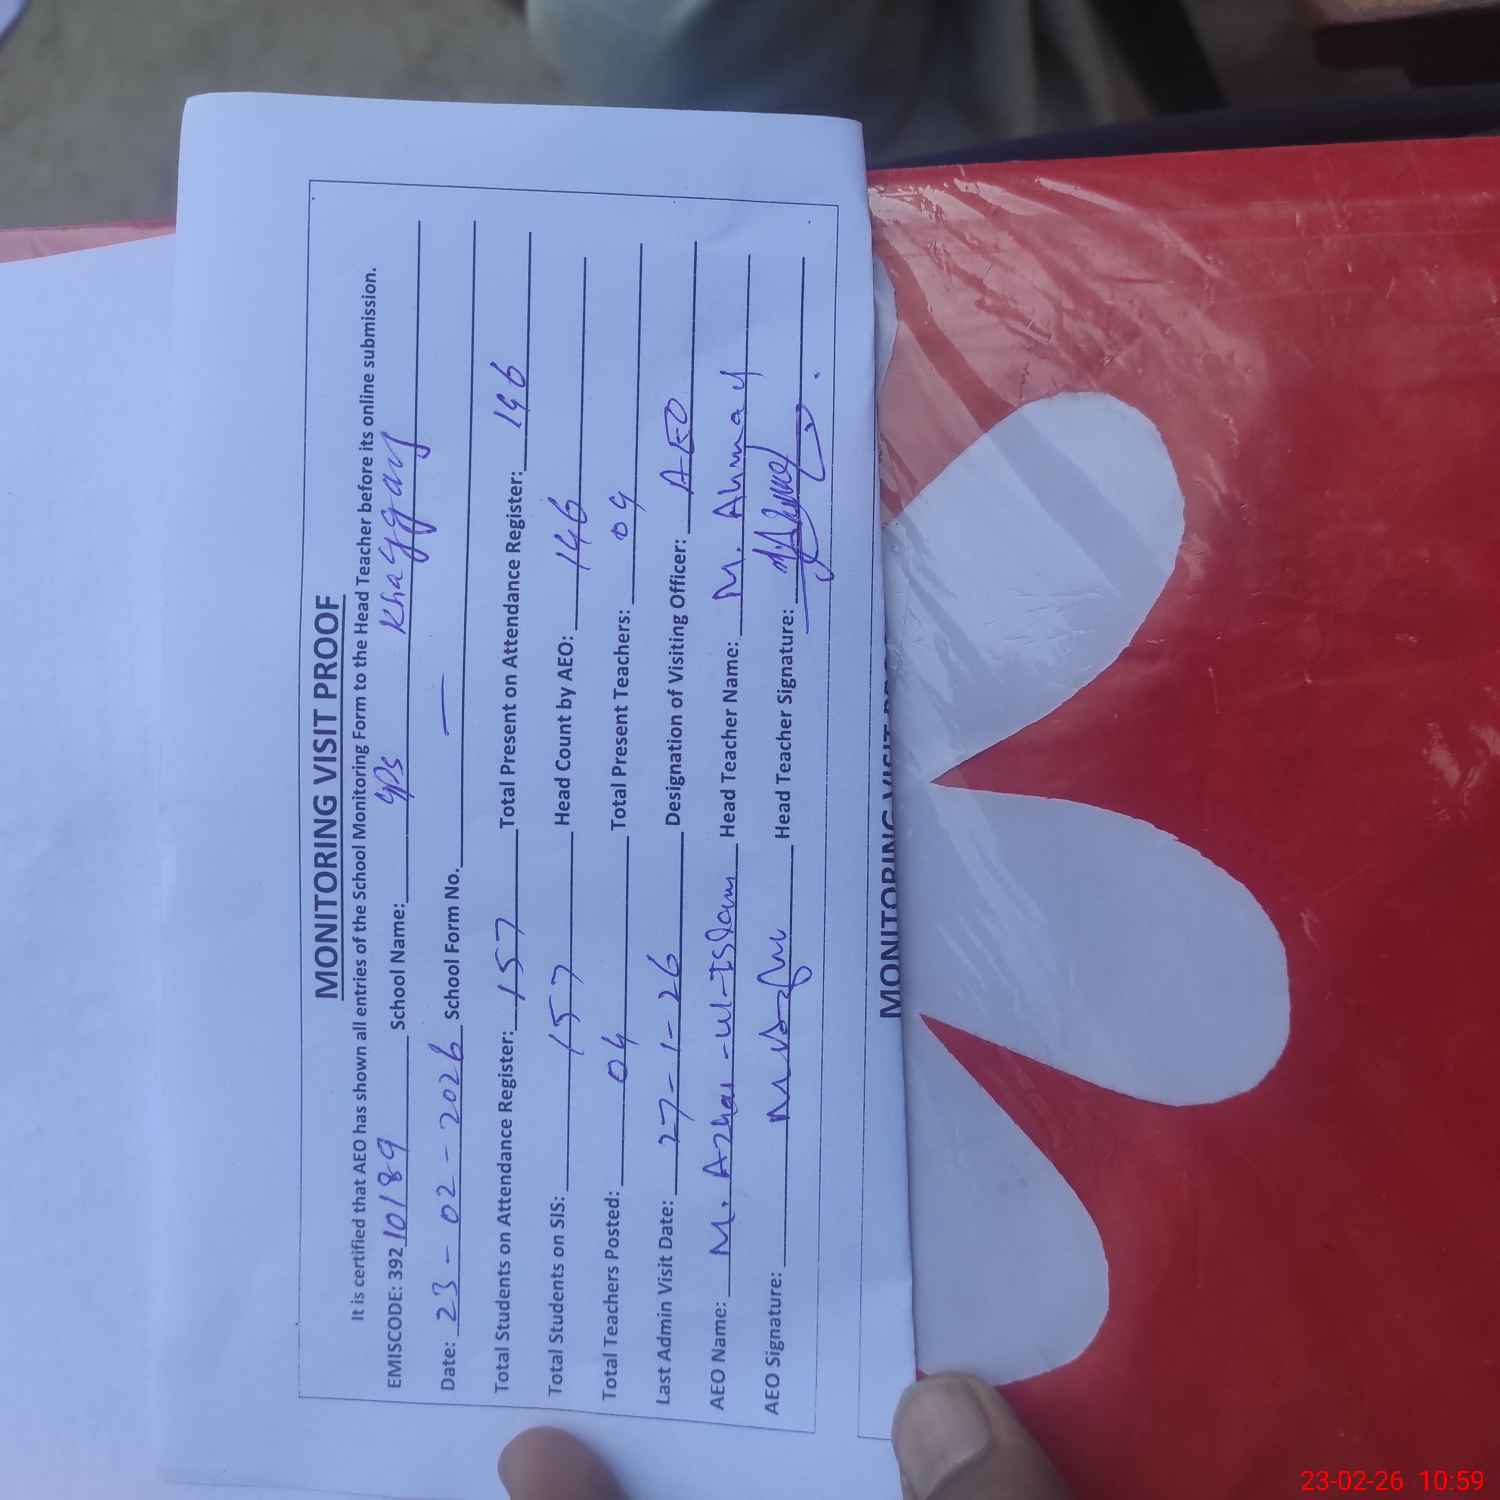 MONITORING VISIT PROOF
It is certified that AEO has shown all entries of the School Monitoring Form to the Head Teacher before its online submission.
EMISCODE: 39210189 School Name: GPS Khaggan
Date: 23-02-2026 School Form No. —
Total Students on Attendance Register: 157 Total Present on Attendance Register: 146
Total Students on SIS: 157 Head Count by AEO: 146
Total Teachers Posted: 04 Total Present Teachers: 04
Last Admin Visit Date: 27-1-26 Designation of Visiting Officer: AEO
AEO Name: M. Azhar-ul-Islam Head Teacher Name: M. Ahmad
AEO Signature: Head Teacher Signature:
MONITORING VISIT
23-02-26 10:59